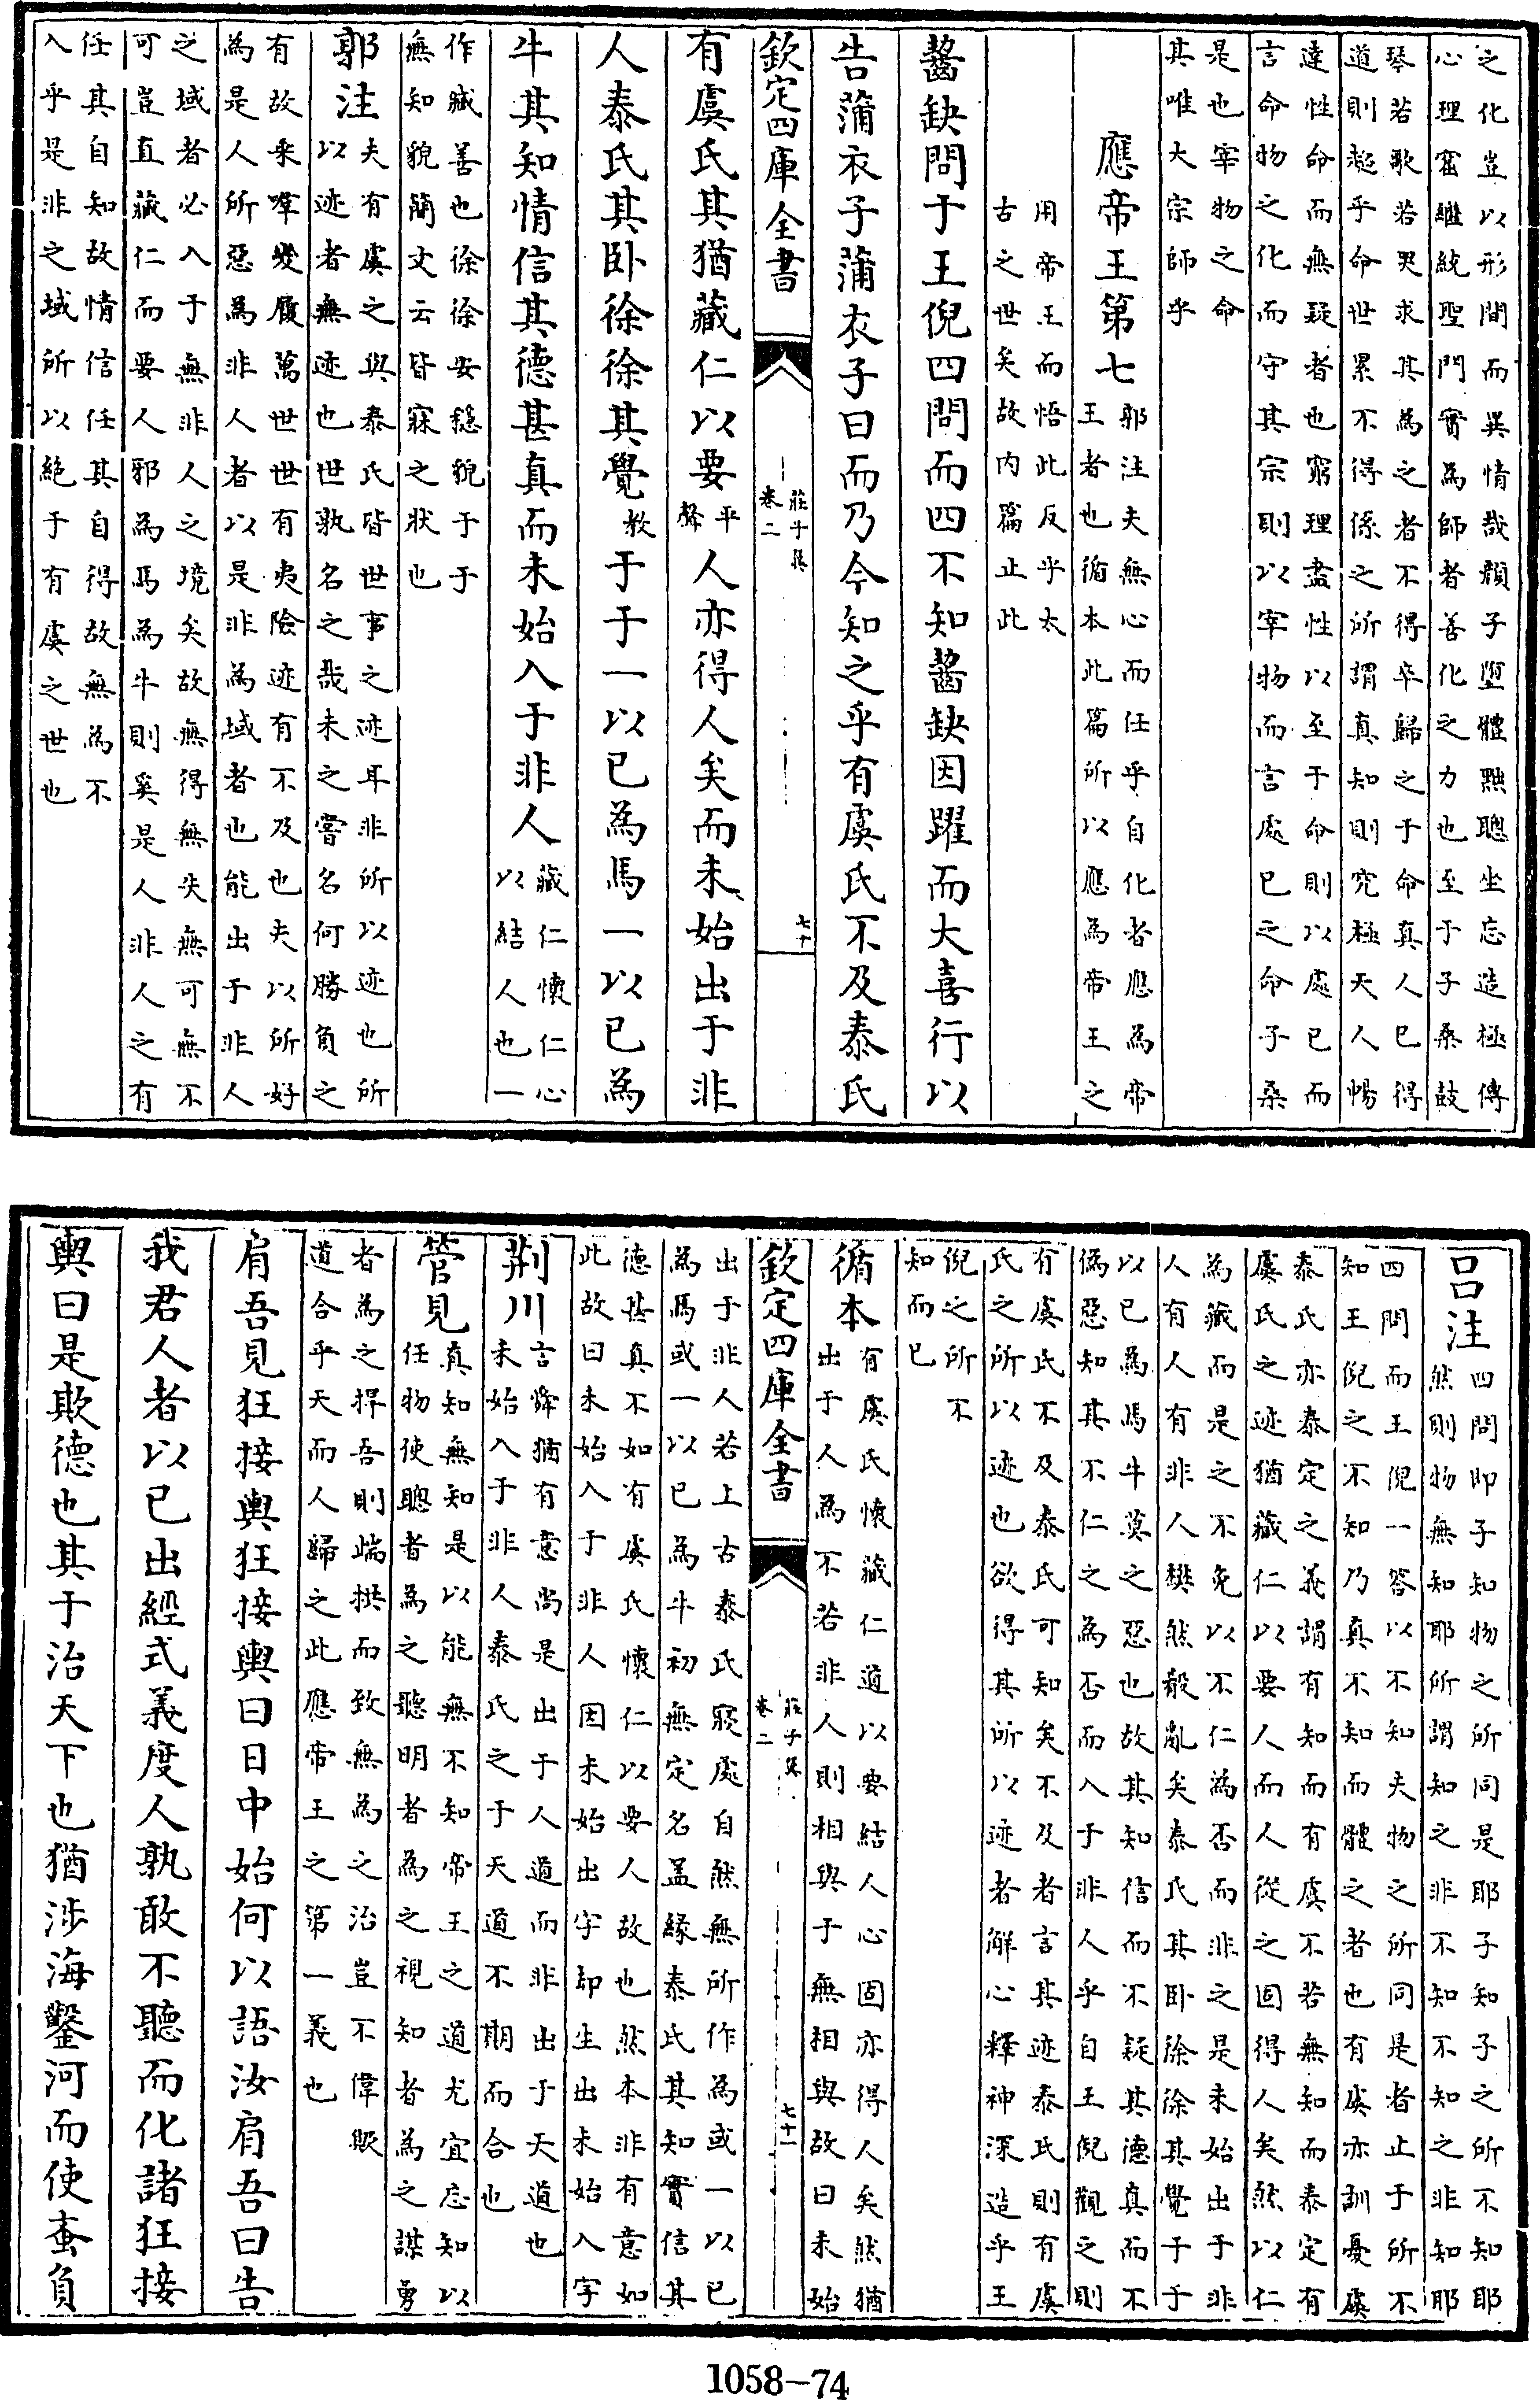 之化豈以形間而異情哉顔子墮體黜聰坐忘造極傳
心理窟繼統聖門實為師者善化之力也至于子桑鼓
琴若歌若哭求其為之者不得卒歸之于命真人已得
道則超乎命世累不得係之所謂真知則究極天人暢
達性命而無疑者也窮理盡性以至于命則以處已而
言命物之化而守其宗則以宰物而言處已之命子桑
是也宰物之命
其唯大宗師乎
應帝王第七
郭注夫無心而任乎自化者應為帝
王者也循本此篇所以應為帝王之
用帝王而悟此反乎太
古之世矣故内篇止此
齧缺問于王倪四問而四不知齧缺因躍而大喜行以
告蒲衣子蒲衣子曰而乃今知之乎有虞氏不及泰氏
欽定四庫全書
莊子翼
卷二
七十
有虞氏其猶藏仁以要平聲人亦得人矣而未始出于非
人泰氏其卧徐徐其覺教于于一以已為馬一以已為
牛其知情信其德甚真而未始入于非人
藏仁懷仁心
以結人也一
作臧善也徐徐安穏貌于于
無知貌簡文云皆寐之狀也
郭注
夫有虞之與泰氏皆世事之迹耳非所以迹也所
以迹者無迹也世孰名之哉未之嘗名何勝負之
有故乘羣變履萬世世有夷險迹有不及也夫以所好
為是人所惡為非人者以是非為域者也能出于非人
之域者必入于無非人之境矣故無得無失無可無不
可豈直藏仁而要人邪為馬為牛則奚是人非人之有
任其自知故情信任其自得故無為不
入乎是非之域所以絶于有虞之世也
吕注
四問即子知物之所同是耶子知子之所不知耶
然則物無知耶所謂知之非不知不知之非知耶
四問而王倪一答以不知夫物之所同是者止于所不
知王倪之不知乃真不知而體之者也有虞亦訓憂虞
泰氏亦泰定之義謂有知而有虞不若無知而泰定有
虞氏之迹猶藏仁以要人而人從之固得人矣然以仁
為藏而是之不免以不仁為否而非之是未始出于非
人有人有非人樊然殽亂矣泰氏其卧徐徐其覺于于
以已為馬牛莫之惡也故其知信而不疑其德真而不
偽惡知其不仁之為否而入于非人乎自王倪觀之則
有虞氏不及泰氏可知矣不及者言其迹泰氏則有虞
氏之所以迹也欲得其所以迹者解心釋神深造乎王
倪之所不
知而已
循本
有虞氏懷藏仁道以要結人心固亦得人矣然猶
出于人為不若非人則相與于無相與故曰未始
欽定四庫全書
莊子翼
卷二
七十一
出于非人若上古泰氏寢處自然無所作為或一以已
為馬或一以已為牛初無定名盖縁泰氏其知實信其
德甚真不如有虞氏懷仁以要人故也然本非有意如
此故曰未始入于非人因未始出字却生出未始入字
荆川
言舜猶有意尚是出于人道而非出于天道也
未始入于非人泰氏之于天道不期而合也
管見
真知無知是以能無不知帝王之道尤宜忘知以
任物使聰者為之聽明者為之視知者為之謀勇
者為之捍吾則端拱而致無為之治豈不偉歟
道合乎天而人歸之此應帝王之第一義也
肩吾見狂接輿狂接輿曰日中始何以語汝肩吾曰告
我君人者以已出經式義度人孰敢不聽而化諸狂接
輿曰是欺德也其于治天下也猶涉海鑿河而使蚉負
1058-74